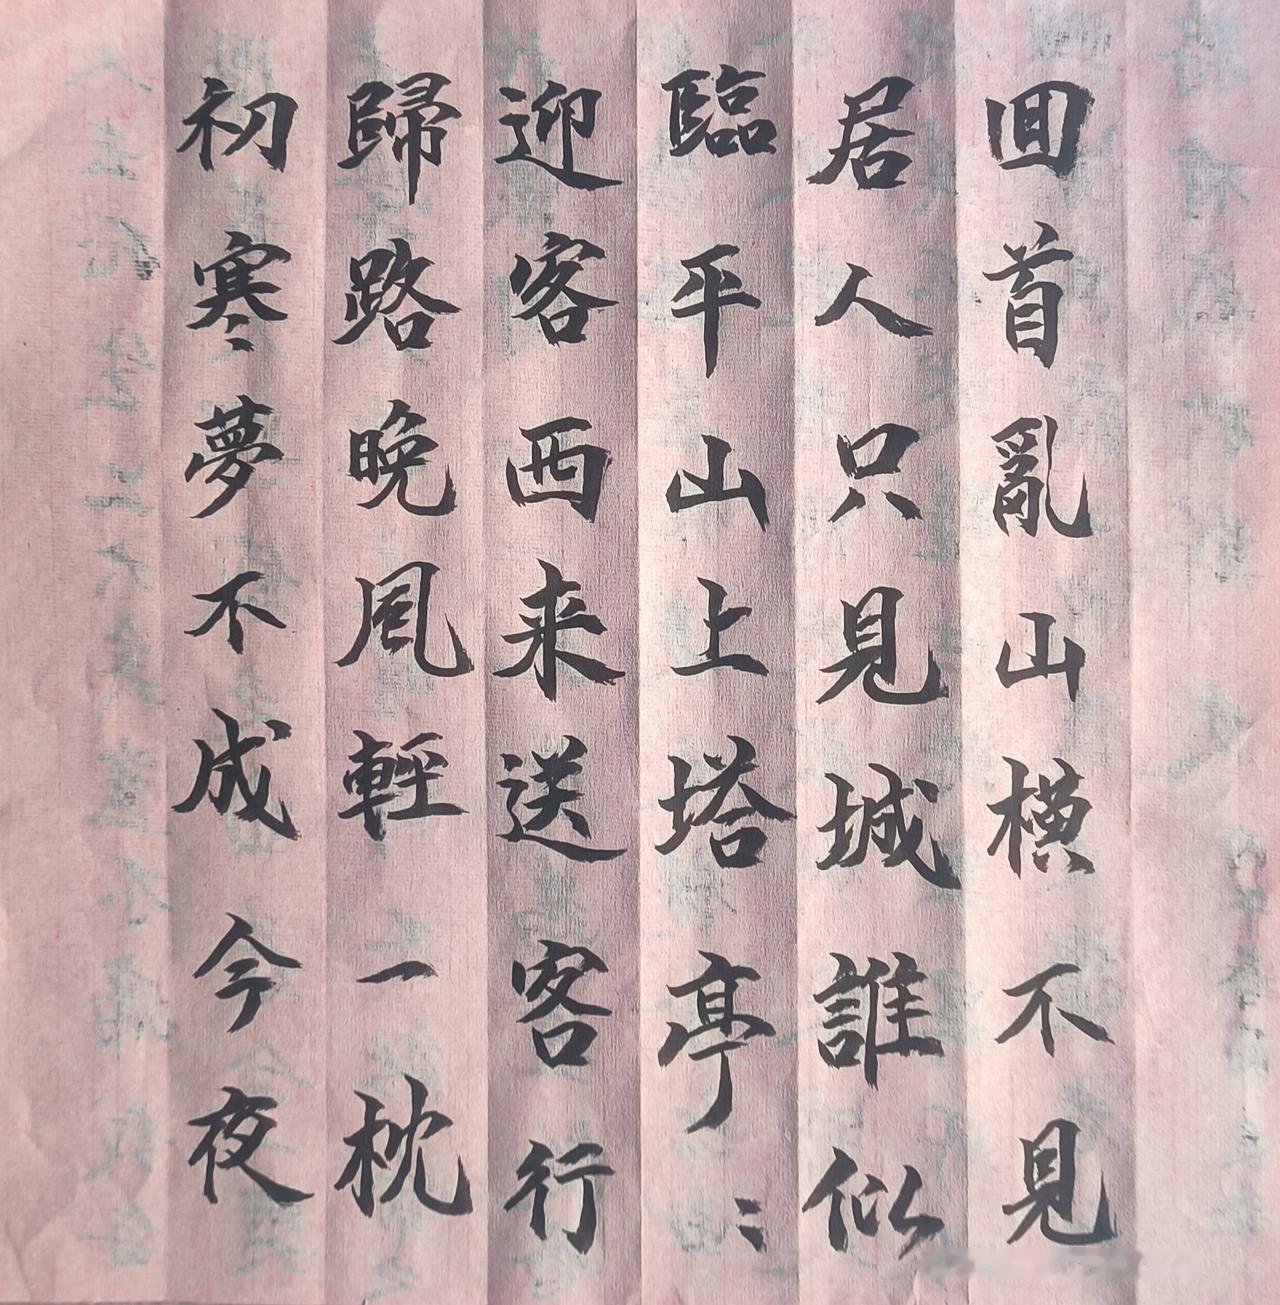 囬首亂山橫不見
居人只見城誰似
臨平山上塔亭〻
迎客西来送客行
歸路晚風輕一枕
初寒夢不成今夜